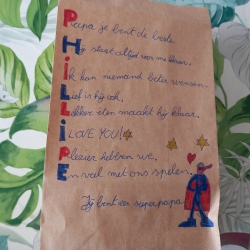 Papa je bent de beste.
Hij staat altijd voor me klaar.
Ik kan niemand beter wensen.
Lief is hij ook,
Lekker eten maakt hij klaar.
I LOVE YOU!
Plezier hebben we,
En veel met ons spelen.
Jij bent een superpapa.